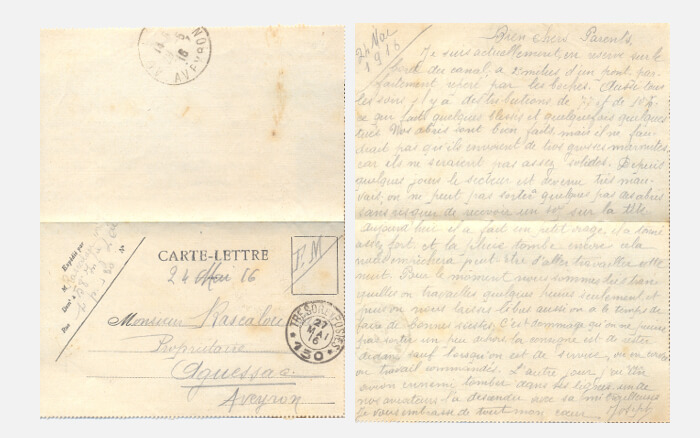 AVEYRON
16
CARTE-LETTRE
24 Mai 16
F.M
Expédié par
M.
Dom
Rue
N°
TRESOR ET POSTES
27
MAI
16
* 130 *
Monsieur Rascalou
Propriétaire
Aguessac
Aveyron
24 Mai
1916
Bien chers Parents,
Je suis actuellement en réserve sur le
bord du canal, a 2 mètres d'un pont, par-
faitement repéré par les boches. Aussi tous
les soirs il y a des distributions de 77 et de 105
ce qui fait quelques blessés et quelquefois quelques
tués. Nos abris sont bien faits, mais il ne fau-
drait pas qu'ils envoient de trop grosses marmites
car ils ne seraient pas assez solides. Depuis
quelques jours le secteur est devenu très mau-
vais, on ne peut pas sortir quelques pas des abris
sans risquer de recevoir un sur la tête
Aujourd'hui il a fait un petit orage, il a tonné
assez fort et la pluie tombe encore, cela
nous empêchera peut-être d'aller travailler cette
nuit. Pour le moment nous sommes très tran-
quilles on travaille quelques heures seulement et
puis on nous laisse libres aussi on a le temps de
faire de bonnes siestes. C'est dommage qu'on ne puisse
pas sortir un peu dehors la consigne est de rester
dedans sauf lorsqu'on est de service, ou en corvée
ou travail commandés. L'autre jour j'ai vu un
avion ennemi tomber dans ses lignes, un de
nos aviateurs l'a descendu avec sa mitrailleuse
Je vous embrasse de tout mon cœur Joseph